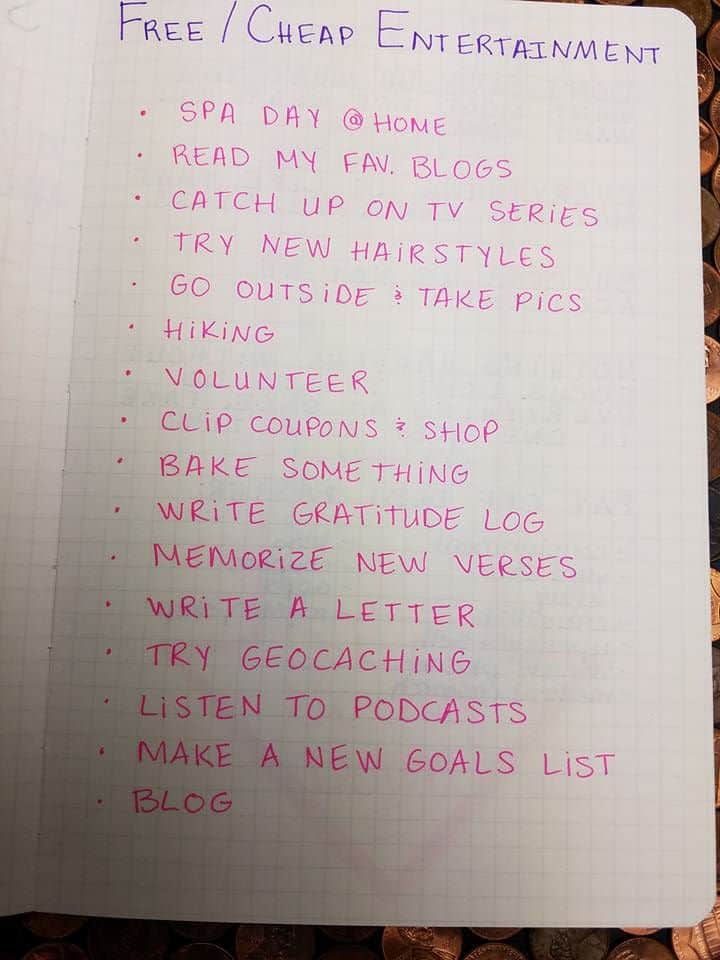 FREE / CHEAP ENTERTAINMENT
• SPA DAY @ HOME
• READ MY FAV. BLOGS
• CATCH UP ON TV SERIES
• TRY NEW HAIRSTYLES
• GO OUTSIDE & TAKE PICS
• HIKING
• VOLUNTEER
• CLIP COUPONS & SHOP
• BAKE SOMETHING
• WRITE GRATITUDE LOG
• MEMORIZE NEW VERSES
• WRITE A LETTER
• TRY GEOCACHING
• LISTEN TO PODCASTS
• MAKE A NEW GOALS LIST
• BLOG